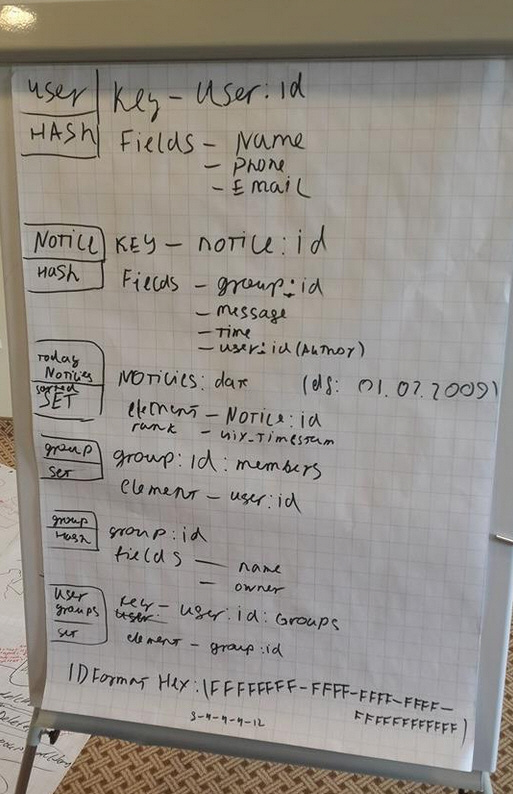 user Key - User:id
HASH Fields - Name
- phone
- Email
Notice KEY - notice:id
Hash Fields - group:id
- message
- Time
- user:id (Author)
Today
Noticies Noticies: date (ds: 01.02.2009)
sorted
SET element - Notice:id
rank - unix_timestam
group group:id:members
set element - user:id
group group:id
Hash fields - name
- owner
User
groups key - user:id:Groups
set element - group:id
ID Format Hex: (FFFFFFFF-FFFF-FFFF-FFFF-
FFFFFFFFFFFF)